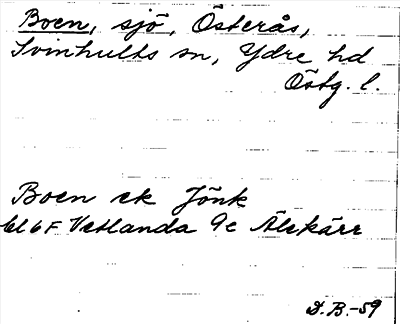 Boen, sjö, Österås,
Svinhults sn, Ydre hd
Östg. l.
Boen ek Jönk
bl 6 F Vetlanda 9c Älekärr
D.B.-59